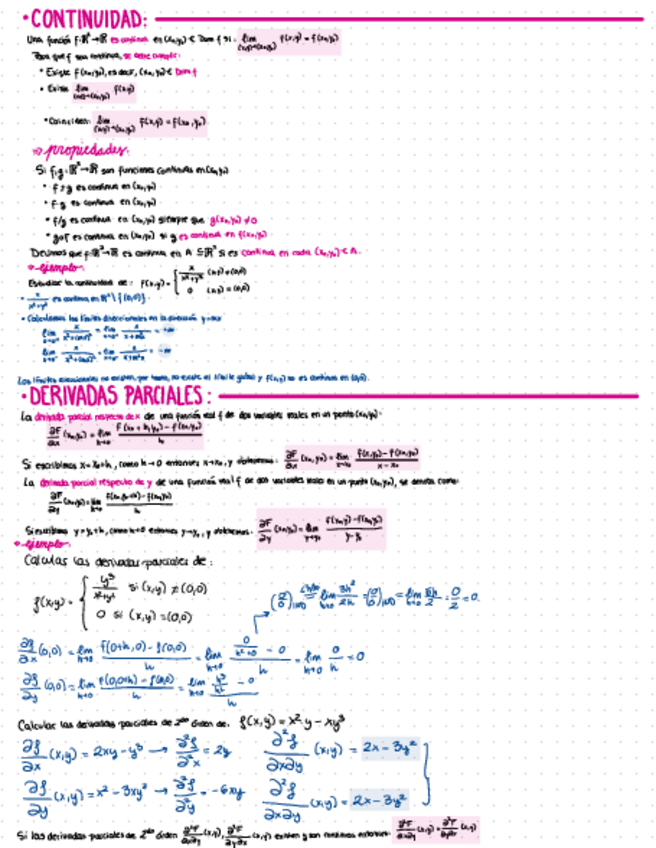 • CONTINUIDAD:
Una función f: ℝ² → ℝ es continua en (x₀,y₀) ∈ Dom f si: lim (x,y)→(x₀,y₀) f(x,y) = f(x₀,y₀)
Para que f sea continua, se debe cumplir:
• Existe f(x₀,y₀), es decir, (x₀,y₀) ∈ Dom f
• Existe lim (x,y)→(x₀,y₀) f(x,y)
• Coinciden: lim (x,y)→(x₀,y₀) f(x,y) = f(x₀,y₀)
⇒ propiedades:
Si f,g: ℝ² → ℝ son funciones continuas en (x₀,y₀)
• f±g es continua en (x₀,y₀)
• f·g es continua en (x₀,y₀)
• f/g es continua en (x₀,y₀) siempre que g(x₀,y₀) ≠ 0
• g∘f es continua en (x₀,y₀) si g es continua en f(x₀,y₀)
Decimos que f: ℝ² → ℝ es continua en A ⊆ ℝ² si es continua en cada (x₀,y₀) ∈ A.
ejemplo:
Estudiar la continuidad de: f(x,y) = { x/(x²+y²) (x,y) ≠ (0,0)
0 (x,y) = (0,0)
• x/(x²+y²) es continua en ℝ² \ {(0,0)}.
• Calculamos los límites direccionales en la dirección y=mx
Los límites direccionales no existen, por tanto, no existe el límite global y f(x,y) no es continua en (0,0).
• DERIVADAS PARCIALES:
La derivada parcial respecto de x de una función real f de dos variables reales en un punto (x₀,y₀):
∂F/∂x (x₀,y₀) = lim h→0 (F(x₀+h,y₀) - f(x₀,y₀))/h
Si escribimos x = x₀+h, como h→0 entonces x→x₀, y obtenemos: ∂F/∂x (x₀,y₀) = lim x→x₀ (f(x,y₀) - f(x₀,y₀))/(x - x₀)
La derivada parcial respecto de y de una función real f de dos variables reales en un punto (x₀,y₀), se denota como:
∂F/∂y (x₀,y₀) = lim h→0 (f(x₀,y₀+h) - f(x₀,y₀))/h
Si escribimos y = y₀+h, como h→0 entonces y→y₀, y obtenemos: ∂F/∂y (x₀,y₀) = lim y→y₀ (f(x₀,y) - f(x₀,y₀))/(y - y₀)
ejemplo:
Calculas las derivadas parciales de:
f(x,y) = { y³/(x²+y²) si (x,y) ≠ (0,0)
0 si (x,y) = (0,0)
∂f/∂x (0,0) = lim h→0 (f(0+h,0) - f(0,0))/h = lim h→0 (0/(h²+0) - 0)/h = lim h→0 0/h = 0
∂f/∂y (0,0) = lim h→0 (f(0,0+h) - f(0,0))/h = lim h→0 (h³/h² - 0)/h
Calcular las derivadas parciales de 2do orden de: f(x,y) = x²·y - xy³
∂f/∂x (x,y) = 2xy - y³ → ∂²f/∂²x = 2y ∂²f/∂x∂y (x,y) = 2x - 3y²
∂f/∂y (x,y) = x² - 3xy² → ∂²f/∂²y = -6xy ∂²f/∂x∂y (x,y) = 2x - 3y²
Si las derivadas parciales de 2do orden ∂²F/∂x∂y (x,y), ∂²F/∂y∂x (x,y) existen y son continuas entonces: ∂²F/∂x∂y (x,y) = ∂²F/∂y∂x (x,y)